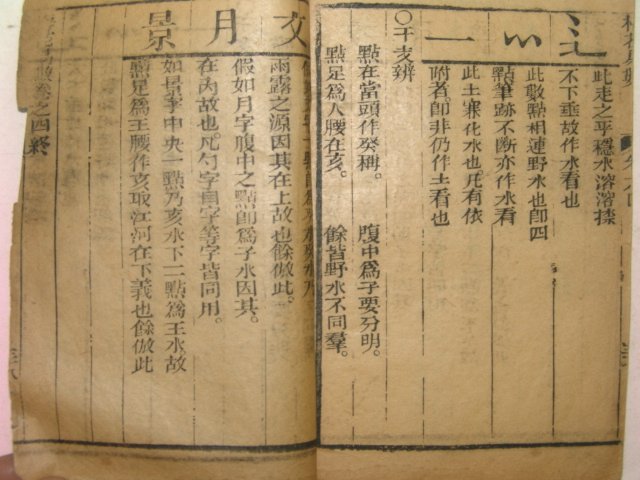 辶 灬 一
此走之平穩水溶溶揉
不下垂故作水看也
此數點相連野水也卽四
點筆跡不斷亦作水看
此土寒化水也凡有依
附者卽非仍作土看也
○干支辨
點在當頭作癸稱。 腹中爲子要分明。
點足爲人腰在亥。 餘皆野水不同羣。
文 月 景
雨露之源因其在上故也餘倣此。
假如月字腹中之點卽爲子水因其。
在內故也凡勺字自字等字皆同用。
如景字中央一點乃亥水下二點爲壬水故
點足爲壬腰作亥取江河在下義也餘倣此
卷之四終